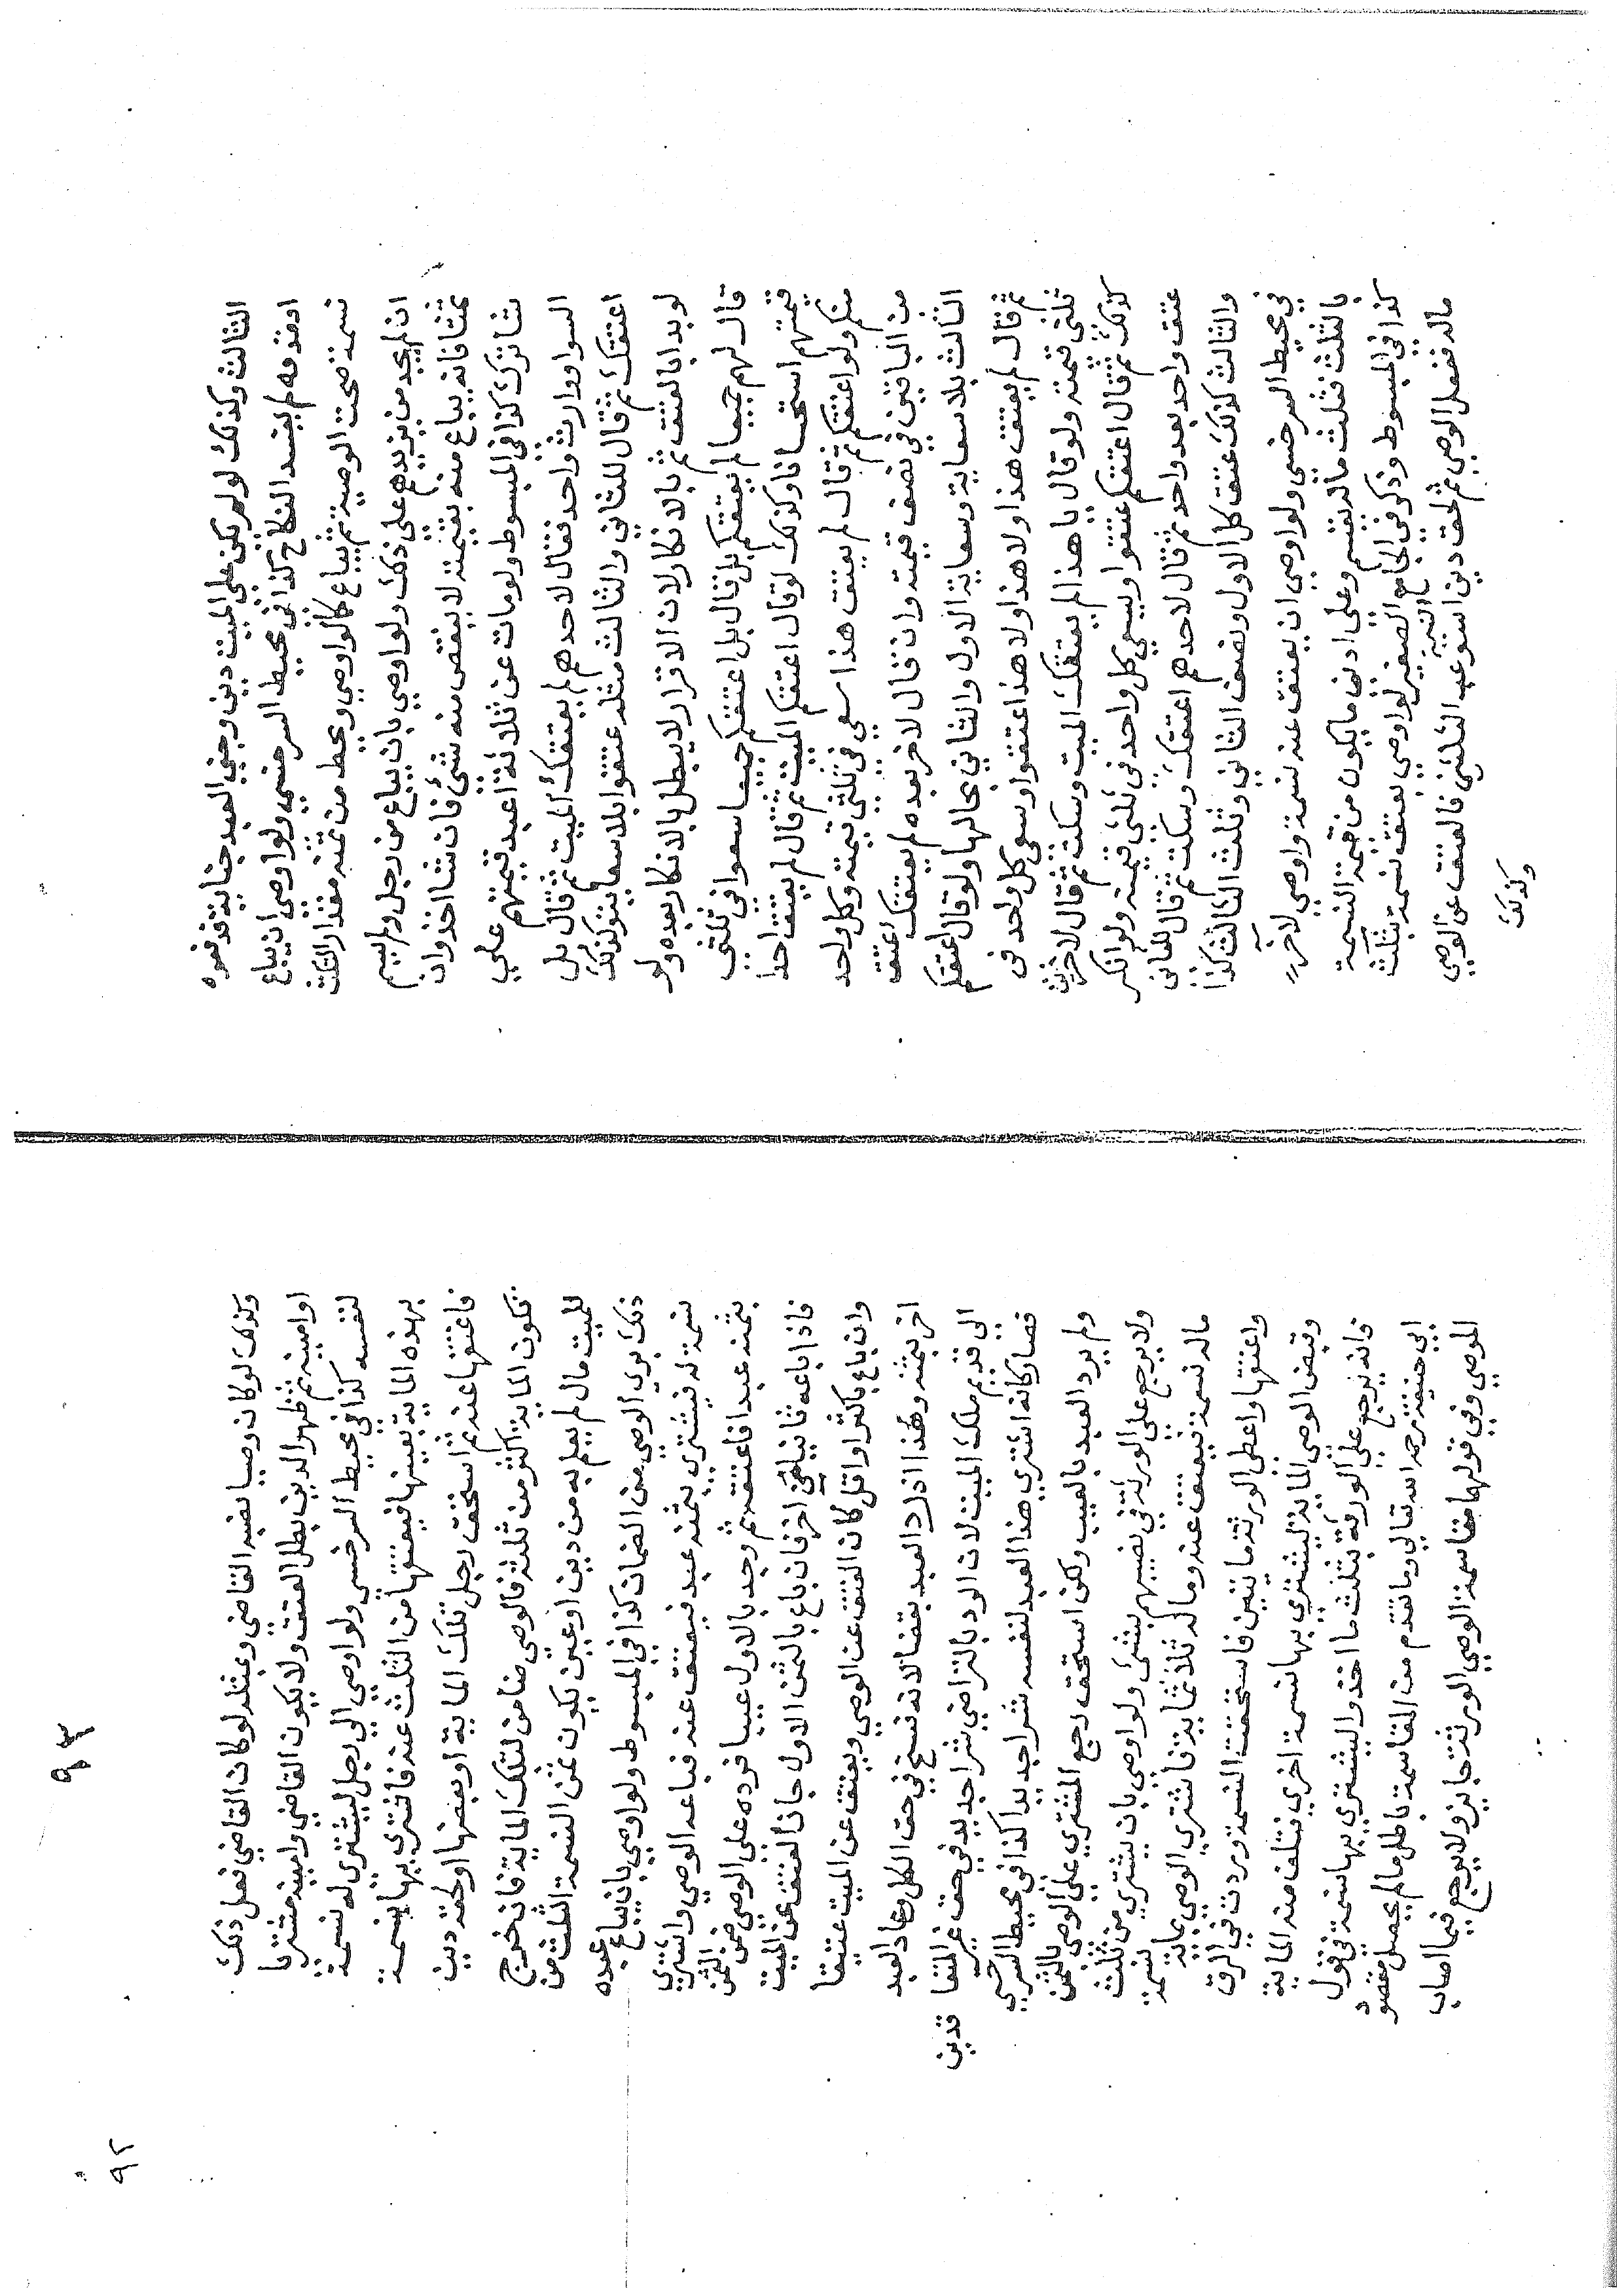 الثالث وكذلك لو لم يكن على الميت دين وجنى العبد جناية فدفعوه
او فدوه لم يفسد النكاح كذا في محيط السرخسي ولو اوصى ان يباع
نسمة صحت الوصية ثم يباع كما لو اوصى ويحط من ثمنه مقدار الثلث
ان لم يجد من يزيدهم على ذلك ولو اوصى بان يباع من رجل ولم يسم
ثمنا فانه يباع منه بقيمته لا ينقص منه شئ فان شا اخذ وان
شا ترك كذا في المبسوط ولو مات عن ثلاثة اعبد قيمتهم على
السوا ووارث واحد فقال لاحدهم لم يعتقك الميت ثم قال بل
اعتقك ثم قال للثاني والثالث مثله عتقوا بلا سعاية وكذلك
لو بدا بالعتق ثم بالانكار لان الاقرار لا يبطل بالانكار بعده ولو
قال لهم جميعا لم يعتقكم بل قال بل اعتقكم جميعا سعوا في ثلثي
قيمتهم استحسانا وكذلك لو قال اعتقكم الميت ثم قال لم يعتق احدا
منكم ولو اعتقكم ثم قال لم يعتق هذا سعى في ثلثي قيمته وكل واحد
من الباقين في نصف قيمته وان قال لاخر بعده لم يعتقك اعتق
الثالث بلا سعاية وسعاية الاول والثاني بحالها ولو قال اعتقكم
ثم قال لم يعتق هذا ولا هذا ولا هذا اعتقوا وسعى كل واحد في
ثلثي قيمته ولو قال يا هذا لم يعتقك الميت وسكت ثم قال لاخرين
كذلك ثم قال اعتقكم عتقوا ويسعى كل واحد في ثلثي قيمته ولو انكر
عتق واحد بعد واحد ثم قال لاحدهم اعتقك وسكت ثم قال للثاني
والثالث كذلك عتق كل الاول ونصف الثاني وثلث الثالث كذا
في محيط السرخسي ولو اوصى ان يعتق عنه نسمة واوصى لاخر
بالثلث فثلث ماله يقسم وعلى ادنى ما يكون من قيمة النسمة
كذا في المبسوط وذكر في الجامع الصغير لو اوصى بعتق نسمة بثلث
ماله ففعل الوصي ثم لحقه دين استوعب الثلثين فالعتق عن الوصي
وكذلك
وكذلك لو كان وصيا نصبه القاضي وبمثله لو كان القاضي فعل ذلك
او امينه ثم ظهر الدين بطل العتق ولا يكون القاضي وامينه مشتريا
لنفسه كذا في محيط السرخسي ولو اوصى الى رجل ليشتري له نسمة
بهذه الماية بعينها فيعتقها من الثلث عنه فاشترى بها نسمة
فاعتقها عنه ثم استحق رجل تلك الماية او بعضها او لحقه دين
فتكون الماية اكثر من ثلثه فالوصي ضامن لتلك الماية فان خرج
للميت مال لم يعلم به من دين او عين يكون ثمن النسمة الثلث من
ذلك برى الوصي من الضمان كذا في المبسوط ولو اوصى بان يباع عبده
نسمة له فيشتري بثمنه عبد فيعتق عنه فباعه الوصي واشترى
بثمنه عبدا فاعتقه ثم وجد بالاول عيبا فرده على الوصي ضمن الثمن
فاذا باعه ثانيا من اخر فان باع بالثمن الاول جاز العتق عن الميت
وان باع باكثر او اقل كان العتق عن الوصي ويعتق عن الميت عتيقا
اخر بثمنه وهذا اذا رد العبد بقضا لانه فسخ في حق الكل وعاد العبد
الى قديم ملك الميت لان الرد بالتراضي شرا جديد في حق غير المتعاقدين
فصار كانه اشترى هذا العبد لنفسه شرا جديدا كذا في محيط السرخسي
ولم يرد العبد بالعيب ولكن استحق رجع المشتري على الوصي بالثمن
ولا يرجع على الورثة في نصيبهم بشئ ولو اوصى بان يشترى من ثلث
ماله نسمة فيعتق عنه وماله ثلاثماية فاشترى الوصي بماية نسمة
واعتقها واعطى الورثة مائتين فاستحقت النسمة وردت في الرق
وقبض الوصي الماية ليشتري بها نسمة اخرى فتلف منه الماية
فانه يرجع على الورثة بثلث ما اخذوا ليشتري بها نسمة في قول
ابي حنيفة رحمه الله تعالى وما تقدم من المقاسمة باطل ما لم يحصل مقصود
الموصي وفي قولهما مقاسمة الوصي الورثة جايز ولا يرجع فيما اصاب
٩٣
٩٢